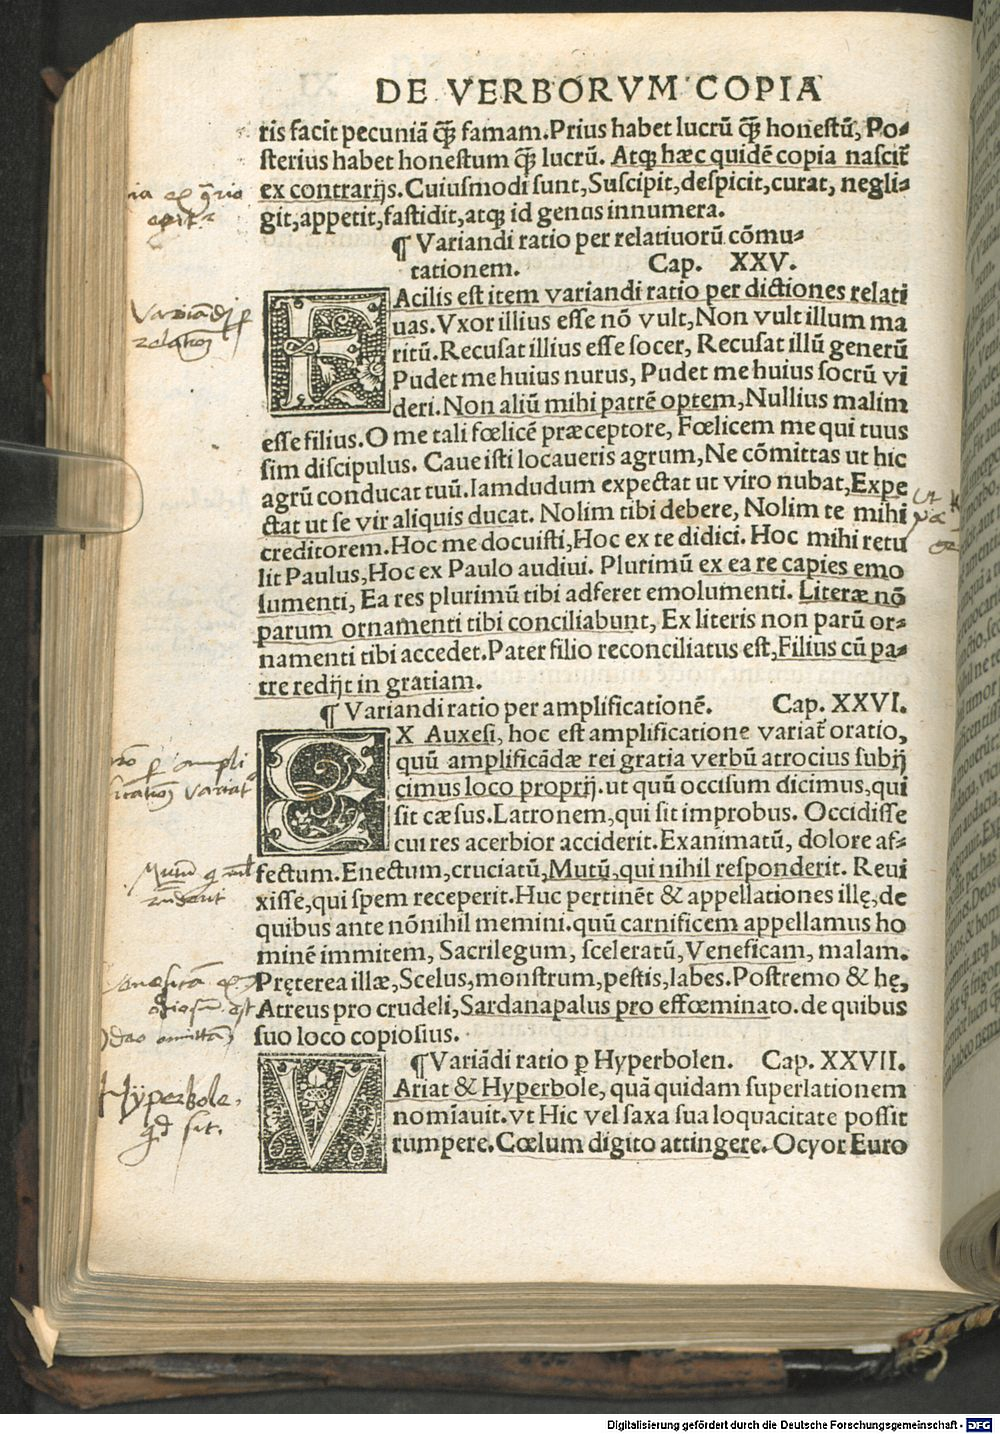 DE VERBORVM COPIA
ris facit pecuniã q̃ famam. Prius habet lucrũ q̃ honestũ, Po-
sterius habet honestum q̃ lucrũ. Atq; hæc quidẽ copia nascit̃
ex contrarijs. Cuiusmodi sunt, Suscipit, despicit, curat, negli-
git, appetit, fastidit, atq; id genus innumera.
¶ Variandi ratio per relatiuorũ cõmu-
tationem. Cap. XXV.
FAcilis est item variandi ratio per dictiones relati
uas. Vxor illius esse nõ vult, Non vult illum ma
ritũ. Recusat illius esse socer, Recusat illũ generũ
Pudet me huius nurus, Pudet me huius socrũ vi
deri. Non aliũ mihi patrẽ optem, Nullius malim
esse filius. O me tali fœlicẽ præceptore, Fœlicem me qui tuus
sim discipulus. Caue isti locaueris agrum, Ne cõmittas ut hic
agrũ conducat tuũ. Iamdudum expectat ut viro nubat, Expe
ctat ut se vir aliquis ducat. Nolim tibi debere, Nolim te mihi
creditorem. Hoc me docuisti, Hoc ex te didici. Hoc mihi retu
lit Paulus, Hoc ex Paulo audiui. Plurimũ ex ea re capies emo
lumenti, Ea res plurimũ tibi adferet emolumenti. Literæ nõ
parum ornamenti tibi conciliabunt, Ex literis non parũ or-
namenti tibi accedet. Pater filio reconciliatus est, Filius cũ pa-
tre redijt in gratiam.
¶ Variandi ratio per amplificationẽ. Cap. XXVI.
EX Auxesi, hoc est amplificatione variat̃ oratio,
quũ amplificãdæ rei gratia verbũ atrocius subij
cimus loco proprij. ut quũ occisum dicimus, qui
sit cæsus. Latronem, qui sit improbus. Occidisse
cui res acerbior acciderit. Exanimatũ, dolore af-
fectum. Enectum, cruciatũ, Mutũ, qui nihil responderit. Reui
xisse, qui spem receperit. Huc pertinẽt & appellationes illę, de
quibus ante nõnihil memini. quũ carnificem appellamus ho
minẽ immitem, Sacrilegum, sceleratũ, Veneficam, malam.
Pręterea illæ, Scelus, monstrum, pestis, labes. Postremo & hę,
Atreus pro crudeli, Sardanapalus pro effœminato. de quibus
suo loco copiosius.
¶ Variãdi ratio ꝑ Hyperbolen. Cap. XXVII.
VAriat & Hyperbole, quã quidam superlationem
nomĩauit. vt Hic vel saxa sua loquacitate possit
rumpere. Cœlum digito attingere. Ocyor Euro
Variãdi ꝑ
relationẽ
Hÿperbole,
qd sit.
Digitalisierung gefördert durch die Deutsche Forschungsgemeinschaft - DFG